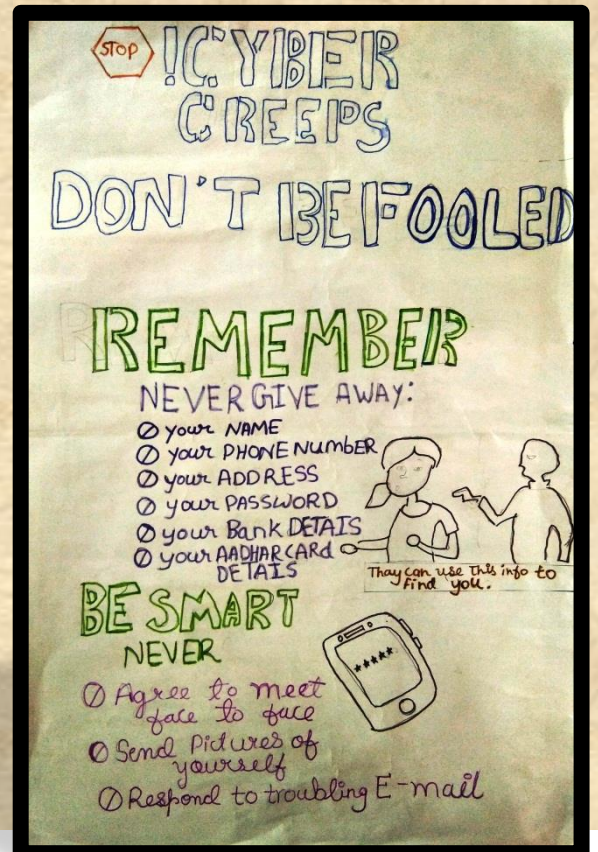 STOP !CYBER
CREEPS
DON'T BE FOOLED
REMEMBER
NEVER GIVE AWAY:
your NAME
your PHONE NumbER
your ADDRESS
your PASSWORD
your Bank DETAIS
your AADHAR CARd
DETAIS
Thay can use This info to
find you.
BE SMART
NEVER
*****
Agree to meet
face to face
Send Pictures of
yourself
Respond to troubling E-mail